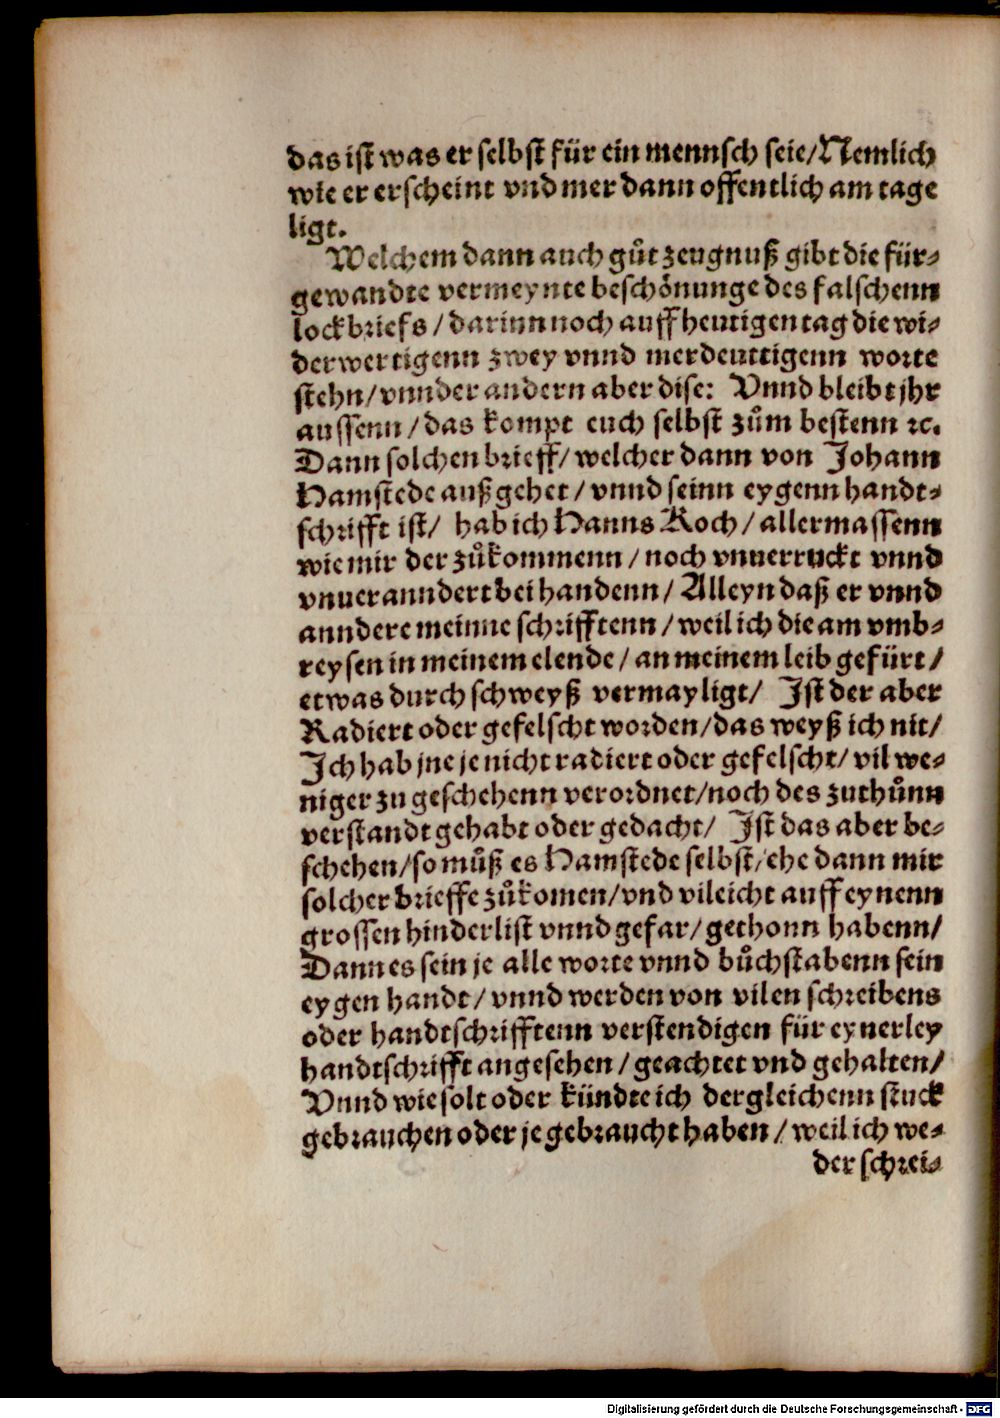 das ist was er selbst für ein mennsch seie/Nemlich
wie er erscheint vnd mer dann offentlich am tage
ligt.
Welchem dann auch gůt zeugnuß gibt die für⸗
gewandte vermeynte beschönunge des falschenn
lockbriefs/darinn noch auff heutigen tag die wi⸗
derwertigenn zwey vnnd merdeuttigenn worte
stehn/vnnder andern aber dise: Vnnd bleibt jhr
aussenn/das kompt euch selbst zům bestenn ꝛc.
Dann solchen brieff/welcher dann von Johann
Hamstede außgehet/vnnd seinn eygenn handt⸗
schrifft ist/ hab ich Hanns Koch/allermassenn
wie mir der zůkommenn/noch vnuerruckt vnnd
vnueranndert bei handenn/Alleyn daß er vnnd
anndere meinne schrifftenn/weil ich die am vmb⸗
reysen in meinem elende/an meinem leib gefürt/
etwas durch schweyß vermayligt/ Jst der aber
Radiert oder gefelscht worden/das weyß ich nit/
Jch hab jne je nicht radiert oder gefelscht/vil we⸗
niger zu geschehenn verordnet/noch des zuthůnn
verstandt gehabt oder gedacht/ Jst das aber be⸗
schehen/so můß es Hamstede selbst/ehe dann mir
solcher brieffe zůkomen/vnd vileicht auff eynenn
grossen hinderlist vnnd gefar/gethonn habenn/
Dann es sein je alle worte vnnd bůchstabenn sein
eygen handt/vnnd werden von vilen schreibens
oder handtschrifftenn verstendigen für eynerley
handtschrifft angesehen/geachtet vnd gehalten/
Vnnd wie solt oder kündte ich dergleichenn stuck
gebrauchen oder je gebraucht haben/weil ich we⸗
der schrei⸗
Digitalisierung gefördert durch die Deutsche Forschungsgemeinschaft - DFG